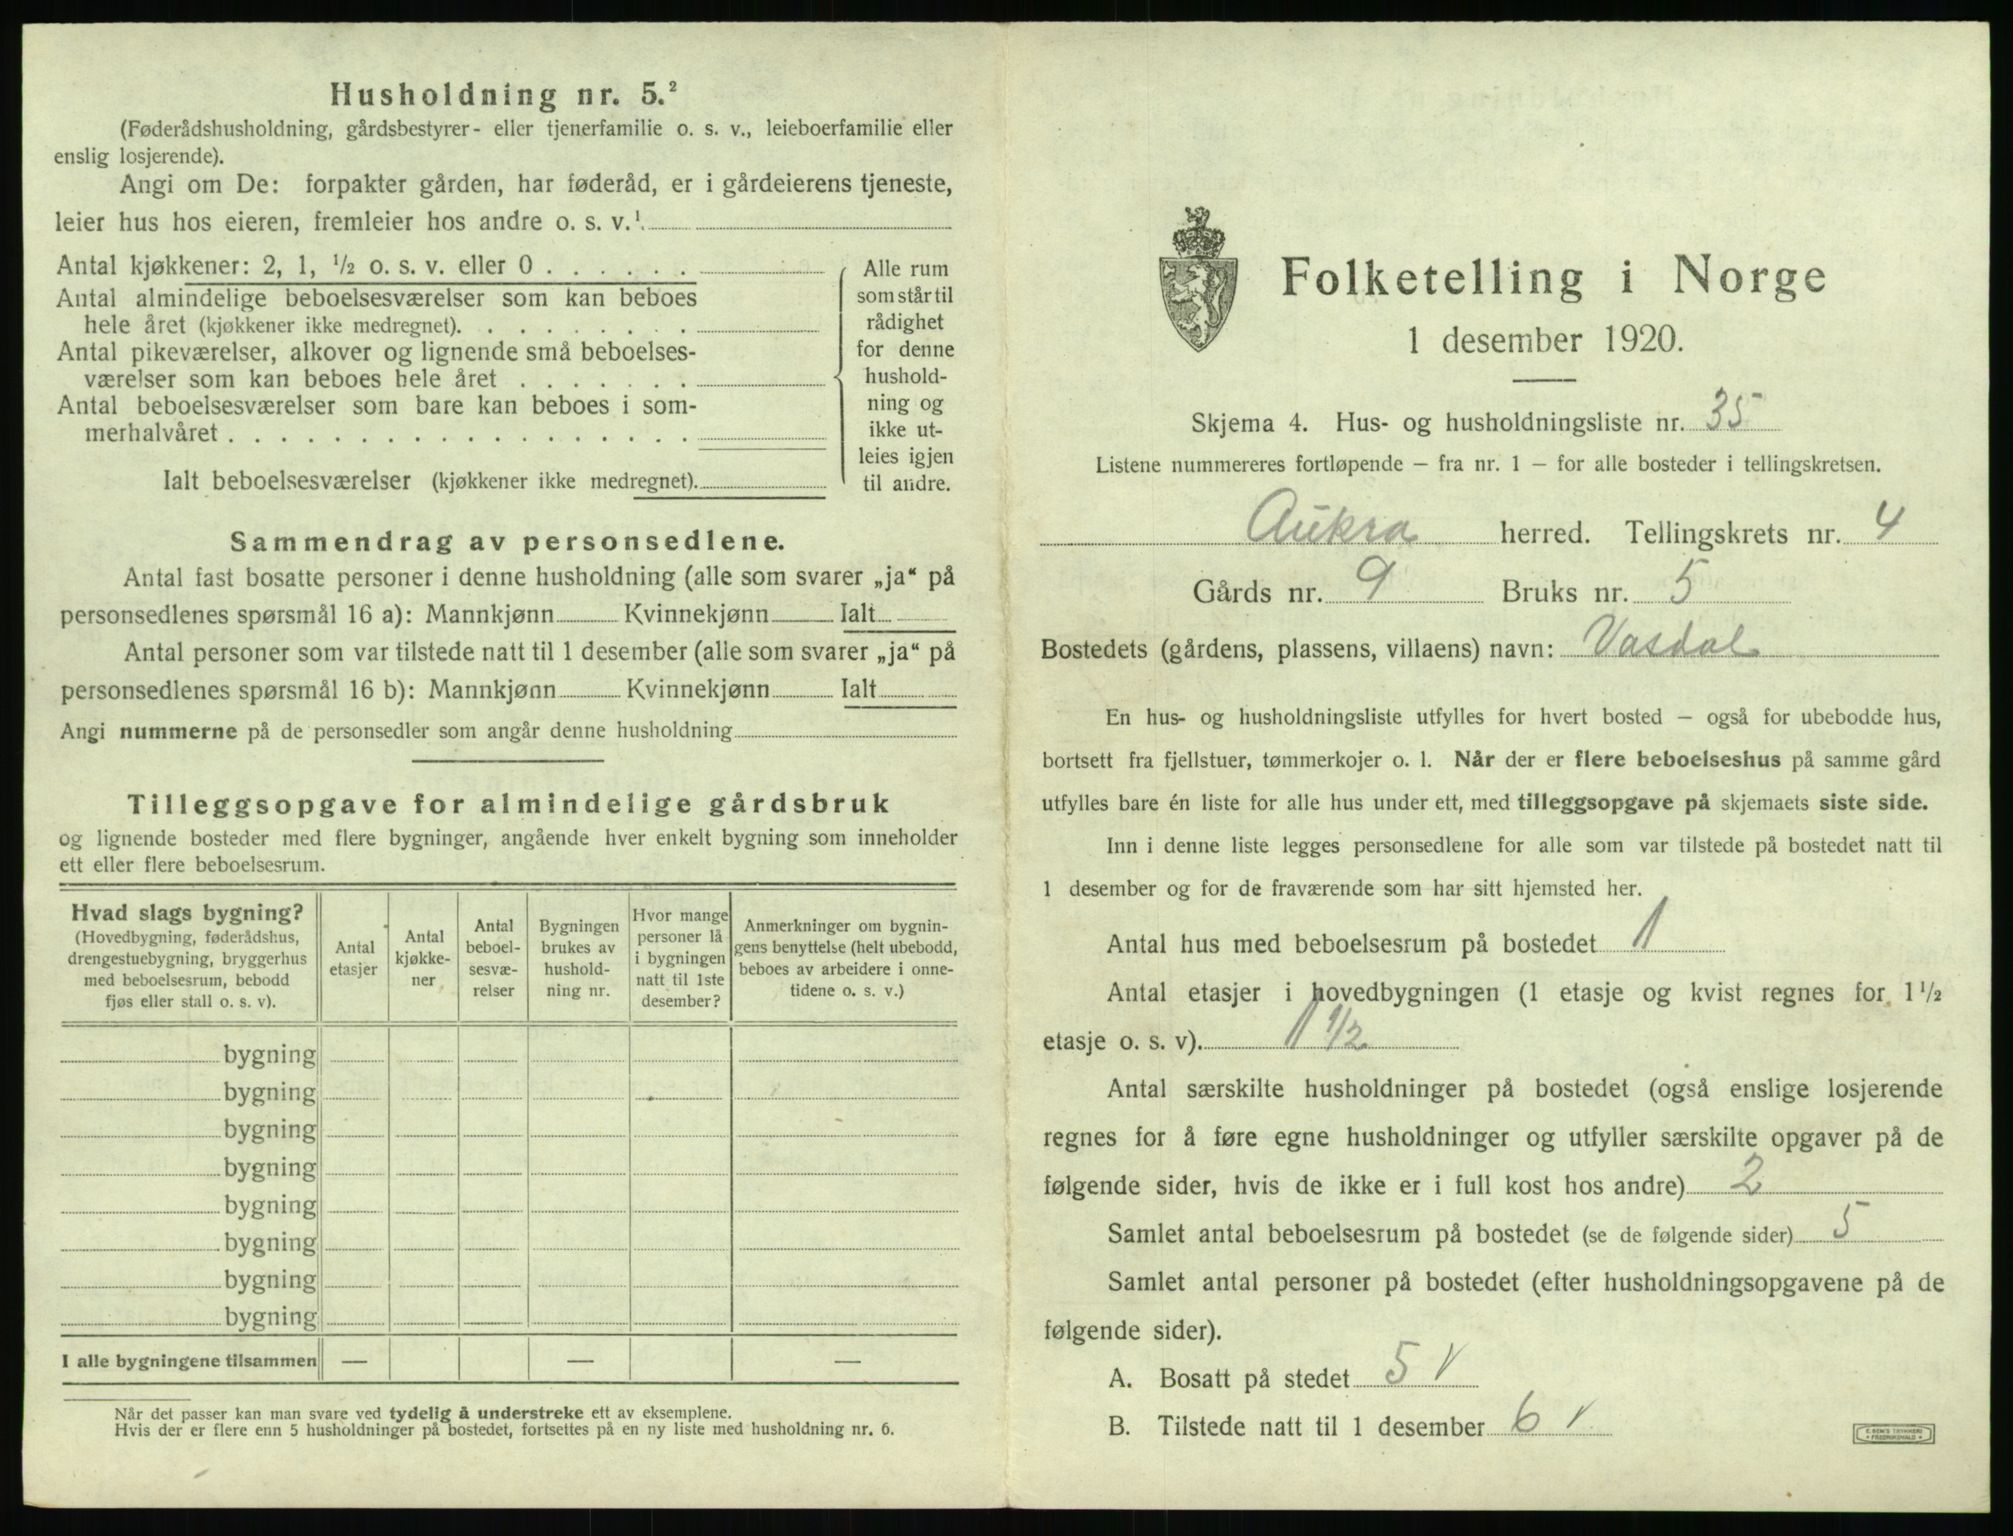 Husholdning nr. 5.²
(Føderådshusholdning, gårdsbestyrer- eller tjenerfamilie o. s. v., leieboerfamilie eller
enslig losjerende).
Angi om De: forpakter gården, har føderåd, er i gårdeierens tjeneste,
leier hus hos eieren, fremleier hos andre o. s. v.¹
Antal kjøkkener: 2, 1, ½ o. s. v. eller 0 . . . . . .
Antal almindelige beboelsesværelser som kan beboes
hele året (kjøkkener ikke medregnet). . . . . . . . .
Antal pikeværelser, alkover og lignende små beboelses-
værelser som kan beboes hele året . . . . . . .
Antal beboelsesværelser som bare kan beboes i som-
merhalvåret . . . . . . . . . . . . . . . . . .
Ialt beboelsesværelser (kjøkkener ikke medregnet).
Alle rum
som står til
rådighet
for denne
hushold-
ning og
ikke ut-
leies igjen
til andre.
Sammendrag av personsedlene.
Antal fast bosatte personer i denne husholdning (alle som svarer „ja“ på
personsedlenes spørsmål 16 a): Mannkjønn Kvinnekjønn Ialt
Antal personer som var tilstede natt til 1 desember (alle som svarer „ja“ på
personsedlenes spørsmål 16 b): Mannkjønn Kvinnekjønn Ialt
Angi nummerne på de personsedler som angår denne husholdning
Tilleggsopgave for almindelige gårdsbruk
og lignende bosteder med flere bygninger, angående hver enkelt bygning som inneholder
ett eller flere beboelsesrum.
Hvad slags bygning?
(Hovedbygning, føderådshus,
drengestuebygning, bryggerhus
med beboelsesrum, bebodd
fjøs eller stall o. s. v).
Antal
etasjer
Antal
kjøkke-
ner
Antal
beboel-
sesvæ-
relser
Bygningen
brukes av
hushold-
ning nr.
Hvor mange
personer lå
i bygningen
natt til 1ste
desember?
Anmerkninger om bygnin-
gens benyttelse (helt ubebodd,
beboes av arbeidere i onne-
tidene o. s. v.)
bygning
bygning
bygning
bygning
bygning
bygning
bygning
bygning
I alle bygningene tilsammen — — —
Når det passer kan man svare ved tydelig å understreke ett av eksemplene.
Hvis der er flere enn 5 husholdninger på bostedet, fortsettes på en ny liste med husholdning nr. 6.
Folketelling i Norge
1 desember 1920.
Skjema 4. Hus- og husholdningsliste nr. 35
Listene nummereres fortløpende — fra nr. 1 — for alle bosteder i tellingskretsen.
Aukra herred. Tellingskrets nr. 4
Gårds nr. 9 Bruks nr. 5
Bostedets (gårdens, plassens, villaens) navn: Vasdal
En hus- og husholdningsliste utfylles for hvert bosted — også for ubebodde hus,
bortsett fra fjellstuer, tømmerkojer o. l. Når der er flere beboelseshus på samme gård
utfylles bare én liste for alle hus under ett, med tilleggsopgave på skjemaets siste side.
Inn i denne liste legges personsedlene for alle som var tilstede på bostedet natt til
1 desember og for de fraværende som har sitt hjemsted her.
Antal hus med beboelsesrum på bostedet 1
Antal etasjer i hovedbygningen (1 etasje og kvist regnes for 1½
etasje o. s. v). 1 1/2
Antal særskilte husholdninger på bostedet (også enslige losjerende
regnes for å føre egne husholdninger og utfyller særskilte opgaver på de
følgende sider, hvis de ikke er i full kost hos andre) 2
Samlet antal beboelsesrum på bostedet (se de følgende sider) 5
Samlet antal personer på bostedet (efter husholdningsopgavene på de
følgende sider).
A. Bosatt på stedet 5 v
B. Tilstede natt til 1 desember 6 v